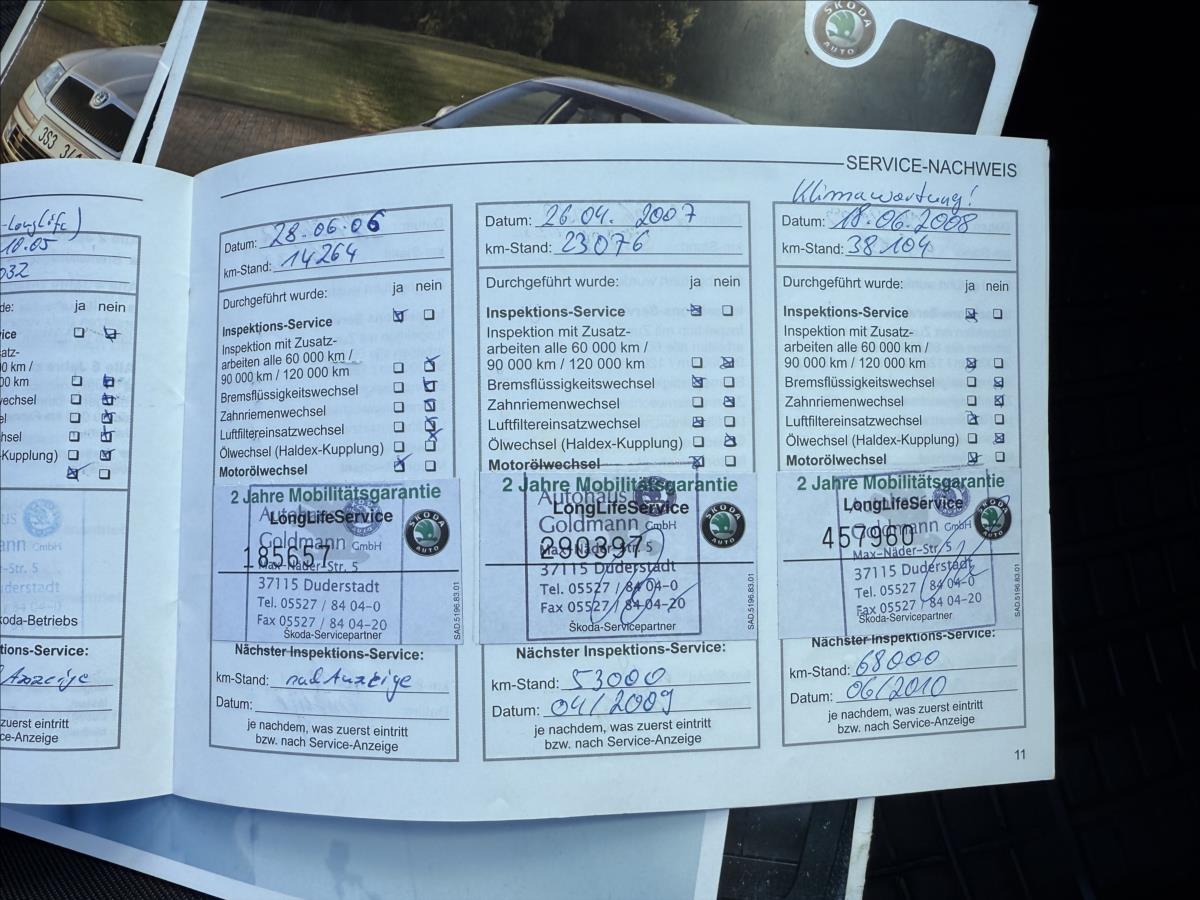 ŠKODA
AUTO
3S3
SERVICE-NACHWEIS
-LongLife)
10.05
032
de: ja nein
ice
atz-
km /
00 km
wechsel
sel
chsel
-Kupplung)
aus
ann GmbH
Str. 5
derstadt
04-0
koda-Betriebs
tions-Service:
Anzeige
zuerst eintritt
ce-Anzeige
Datum: 28.06.06
km-Stand: 14264
Durchgeführt wurde: ja nein
Inspektions-Service
Inspektion mit Zusatz-
arbeiten alle 60 000 km /
90 000 km / 120 000 km
Bremsflüssigkeitswechsel
Zahnriemenwechsel
Luftfiltereinsatzwechsel
Ölwechsel (Haldex-Kupplung)
Motorölwechsel
2 Jahre Mobilitätsgarantie
LongLifeService
Autohaus
Goldmann GmbH
185657
Max-Näder-Str. 5
37115 Duderstadt
Tel. 05527 / 84 04-0
Fax 05527 / 84 04-20
Škoda-Servicepartner
SAD.5196.83.01
ŠKODA
AUTO
Nächster Inspektions-Service:
km-Stand: nach Anzeige
Datum:
je nachdem, was zuerst eintritt
bzw. nach Service-Anzeige
Datum: 26.04. 2007
km-Stand: 23076
Durchgeführt wurde: ja nein
Inspektions-Service
Inspektion mit Zusatz-
arbeiten alle 60 000 km /
90 000 km / 120 000 km
Bremsflüssigkeitswechsel
Zahnriemenwechsel
Luftfiltereinsatzwechsel
Ölwechsel (Haldex-Kupplung)
Motorölwechsel
2 Jahre Mobilitätsgarantie
Autohaus
LongLifeService
Goldmann GmbH
290397
Max-Näder-Str. 5
37115 Duderstadt
Tel. 05527 / 84 04-0
Fax 05527 / 84 04-20
Škoda-Servicepartner
SAD.5196.83.01
ŠKODA
AUTO
Nächster Inspektions-Service:
km-Stand: 53000
Datum: 04/2009
je nachdem, was zuerst eintritt
bzw. nach Service-Anzeige
Klimawartung!
Datum: 18.06.2008
km-Stand: 38.104
Durchgeführt wurde: ja nein
Inspektions-Service
Inspektion mit Zusatz-
arbeiten alle 60 000 km /
90 000 km / 120 000 km
Bremsflüssigkeitswechsel
Zahnriemenwechsel
Luftfiltereinsatzwechsel
Ölwechsel (Haldex-Kupplung)
Motorölwechsel
2 Jahre Mobilitätsgarantie
LongLifeService
Goldmann GmbH
457960
Max-Näder-Str. 5
37115 Duderstadt
Tel. 05527 / 84 04-0
Fax 05527 / 84 04-20
Škoda-Servicepartner
SAD.5196.83.01
ŠKODA
AUTO
Nächster Inspektions-Service:
km-Stand: 68000
Datum: 06/2010
je nachdem, was zuerst eintritt
bzw. nach Service-Anzeige
11